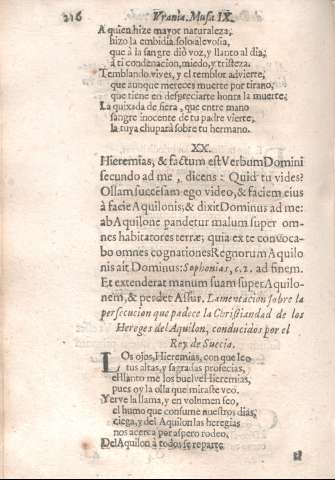 216 Vrania. Musa IX.
A quien hize mayor naturaleza,
hizo la embidia solo alevosia,
que à la sangre diò voz, y llanto al dia,
à ti condenacion, miedo, y tristeza.
Temblando vives, y el temblor advierte,
que aunque mereces muerte por tirano,
que tiene en despreciarte honra la muerte;
La quixada de fiera, que entre mano
sangre inocente de tu padre vierte,
la tuya chuparà sobre tu hermano.
XX.
Hieremias, & factum est Verbum Domini
secundo ad me, dicens: Quid tu vides?
Ollam succēsam ego video, & faciem eius
à facie Aquilonis; & dixit Dominus ad me:
ab Aquilone pandetur malum super om-
nes habitatores terræ; quia ex te convoca-
bo omnes cognationes Regnorum Aquilo
nis ait Dominus: Sophonias, c. 2. ad finem.
Et extenderat manum suam super Aquilo-
nem, & perdet Assur. Lamentacion sobre la
persecucion que padece la Christiandad de los
Hereges del Aquilon, conducidos por el
Rey de Suecia.
LOs ojos, Hieremias, con que leo
tus altas, y sagradas profecias,
en llanto me los buelve Hieremias,
pues oy la olla que miraste veo.
Yerve la llama, y en volumen feo,
el humo que consume nuestros dias,
ciega, y del Aquilon las heregias
nos acerca por aspero rodeo.
Del Aquilon à todos se reparte
el